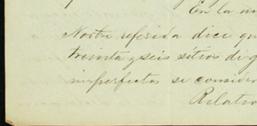 En la m
Nostra referida dice qu
treinta y seis sitios de g
imperfectas se consider
Relativo